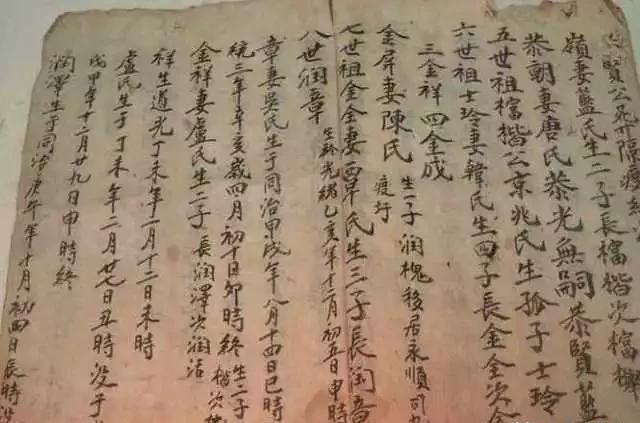 賢公
嶺妻藍氏生二子長檔楷次檔
恭朝妻唐氏恭光無嗣恭賢藍
五世祖檔楷公京兆氏生孤子士玲
六世祖士玲妻韓氏生四子長金全次金
三金祥四金成
金屏妻陳氏生一子潤槐移居永順司
七世祖金全妻覃氏生三子長潤章
八世潤章生於光緒乙亥年十一月初五日申時
章妻吳氏生于同治甲戌年八月十四日巳時
統三年辛亥歲四月初十日卯時終生二子
金祥妻盧氏生二子長潤澤次潤活
祥生道光丁未年一月十二日未時
盧氏生于丁未年二月廿七日丑時没于
戊甲年十二月廿九日申時終
潤澤生于同治庚午年十月初四日辰時